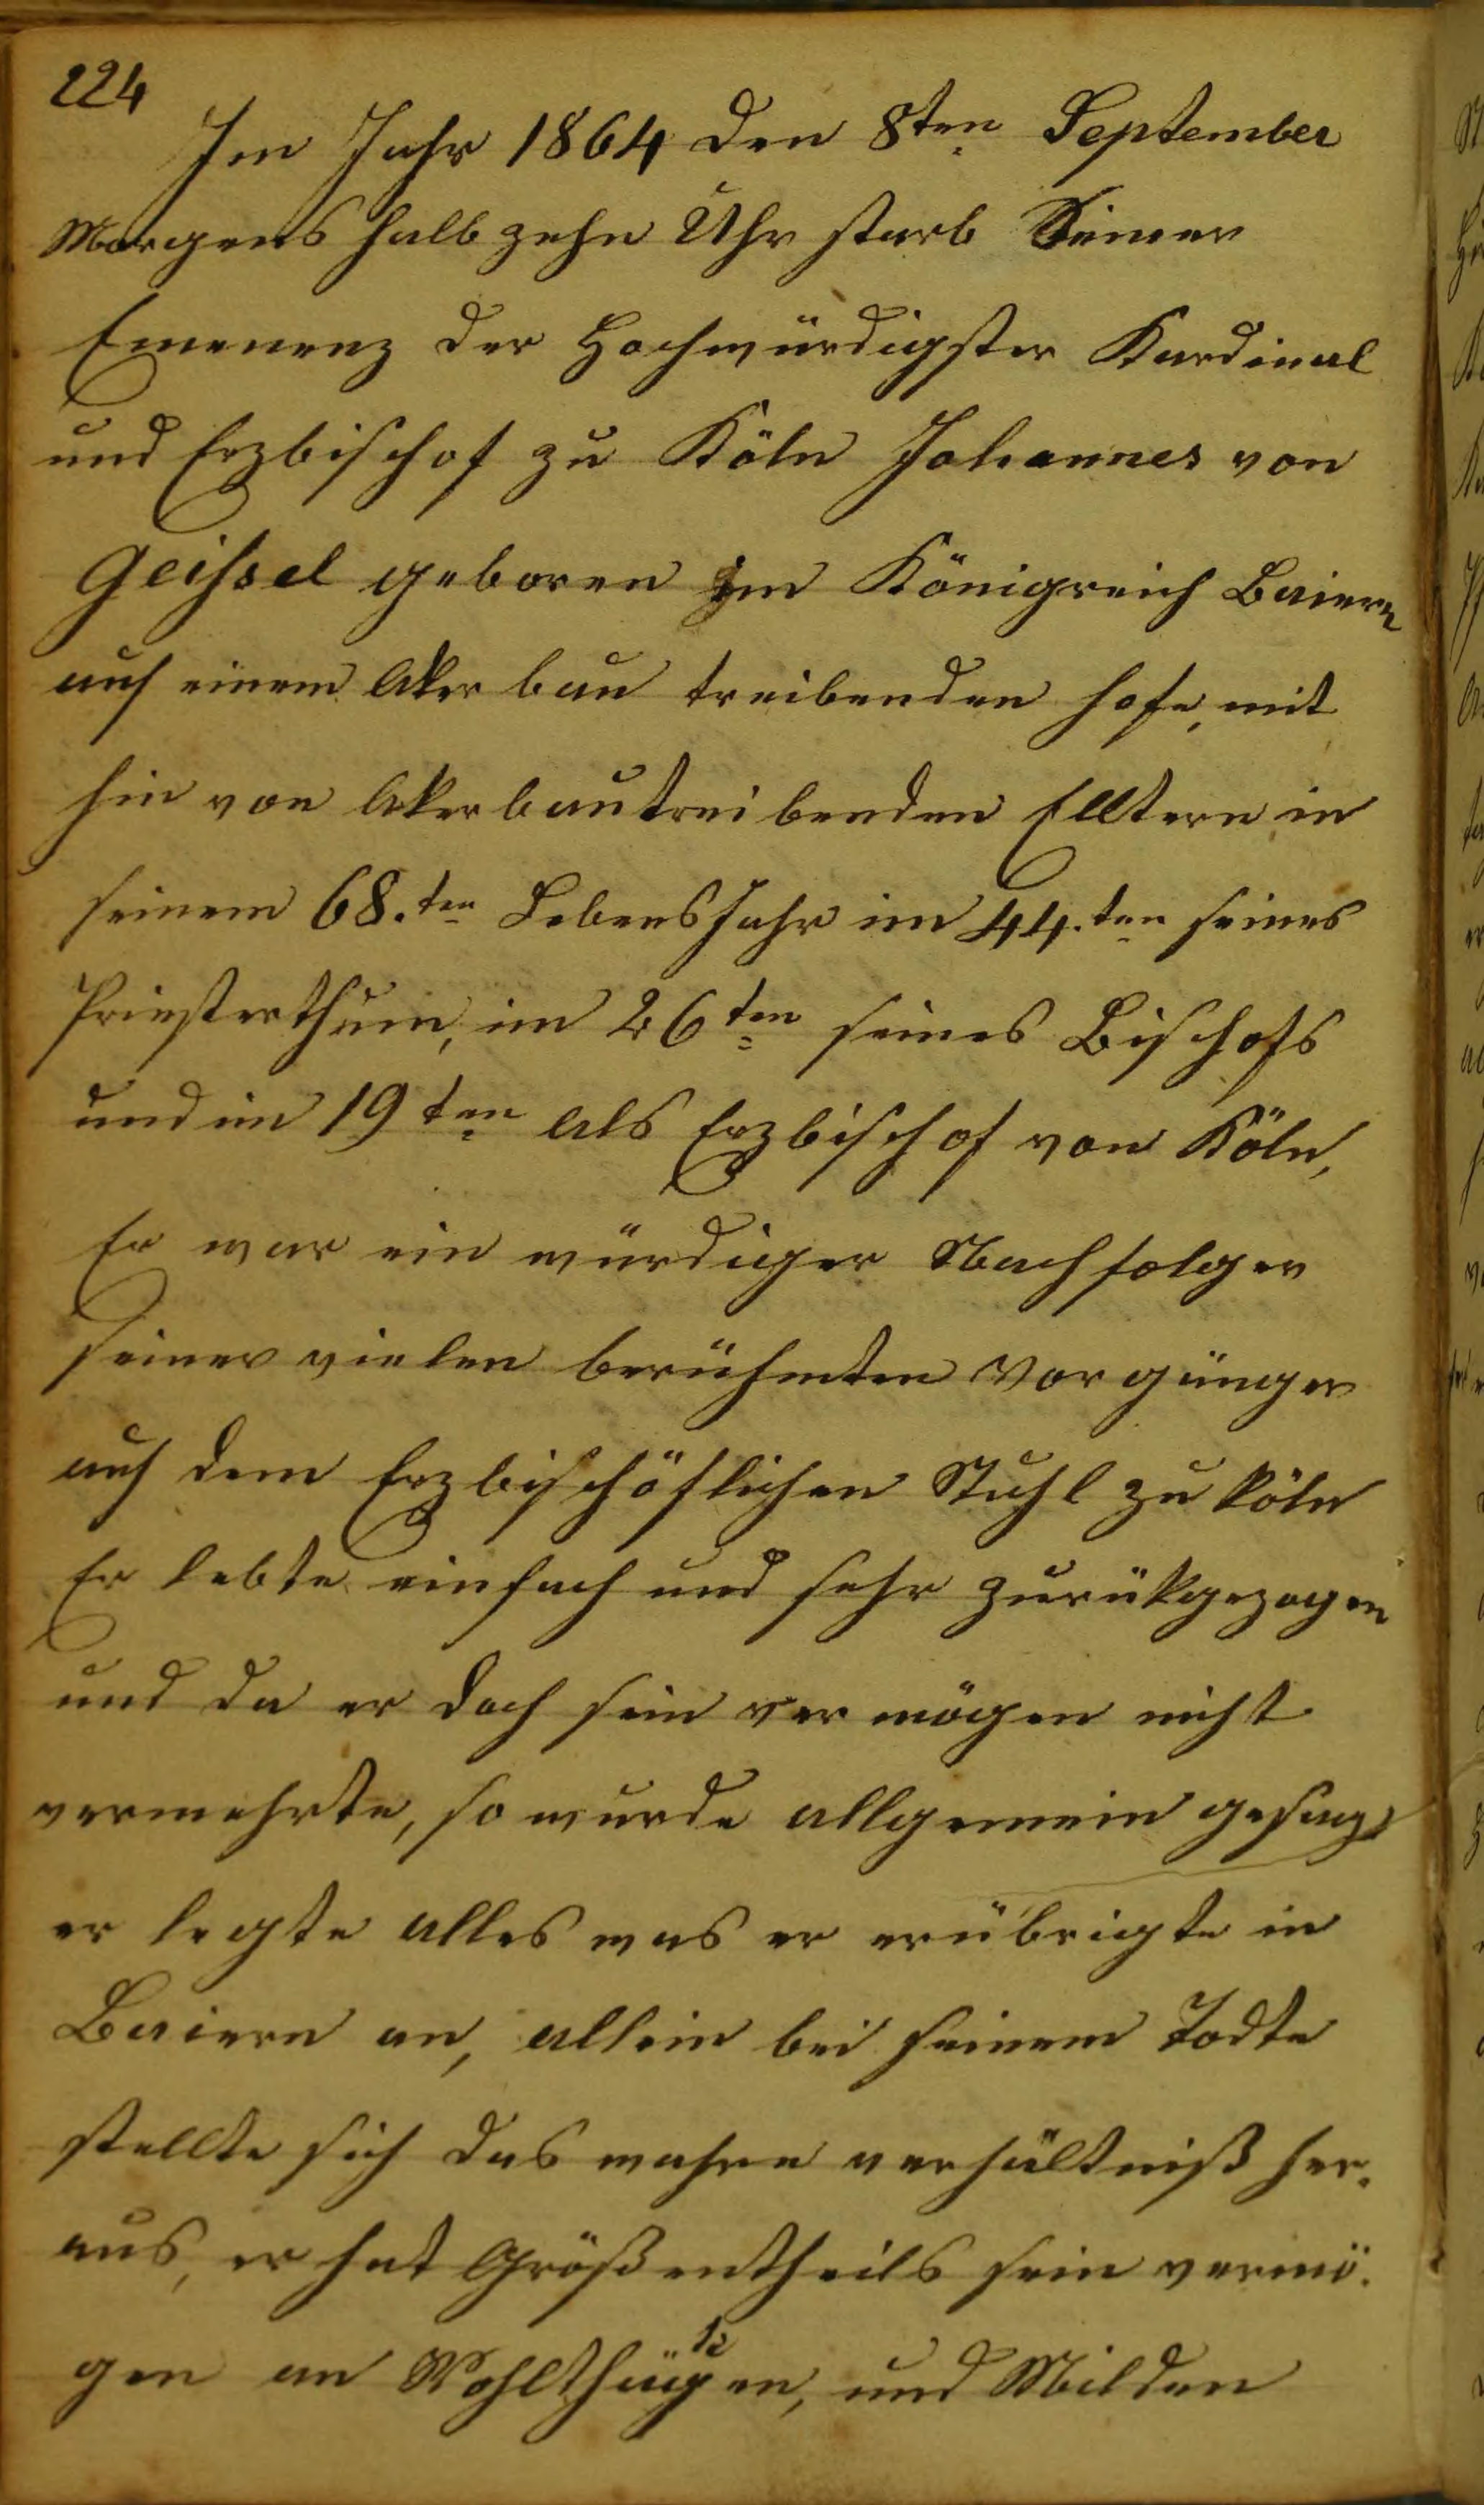 224
Im Jahr 1864 den 8ten September
Morgens halb zehn Uhr starb Seiner
Emenenz der Hochwürdigster Kardinal
und Erzbischof zu Köln Johannes von
Geissel geboren im Königreich Baiern
auf einem Aker bau treibenden hofe, mit
hin von Akerbautreibenden Elltern in
seinem 68.ten LebensJahr im 44.ten seines
Priesterthum, im 26ten seines Bischofs
und im 19ten als Erzbischof von Köln,
Er war ein würdiger Nachfolger
seiner vielen berühmten Vorgänger
auf dem Erzbischöflichen Stuhl zu köln
Er lebte einfach und sehr zurükgezogen
und da er doch sein vermögen nicht
vermehrte, so wurde allgemein gesagt
er legte alles was er erübrigte in
Baiern an, allein bei seinem Todte
stellte sich das wahre verhältniß her.
aus, er hat Größentheils sein vermö.
gen an und Milden